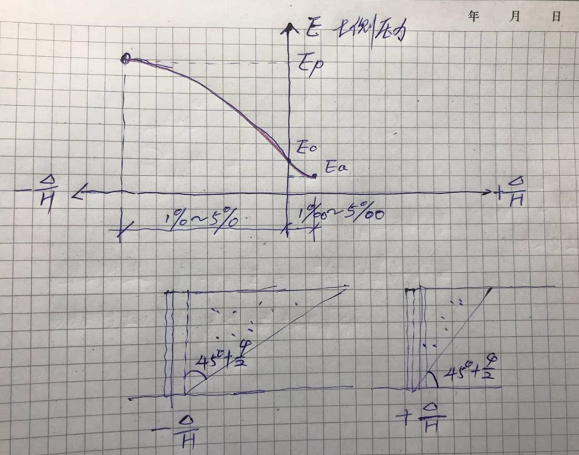 年 月 日
E 土侧压力
Ep
Eo
Ea
-Δ/H
+Δ/H
1%~5%
1‰~5‰
45°+φ/2
45°+φ/2
-Δ/H
+Δ/H